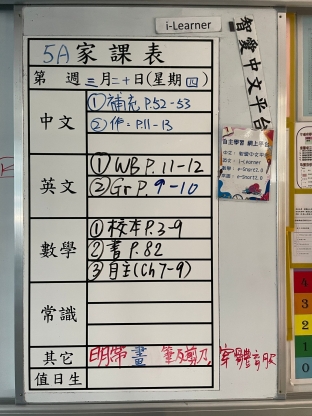 i-Learner
智愛中文平台
5A家課表
第 週 三月二十日(星期四)
中文
①補充P.52-53
②作 P.11-13
英文
①WB P.11-12
②Gr P.9-10
數學
①校本P.3-9
②書P.82
③月主(Ch7-9)
常識
其它
明帶畫筆及剪刀,穿體育服
值日生
自主學習 網上平台
4
3
2
1